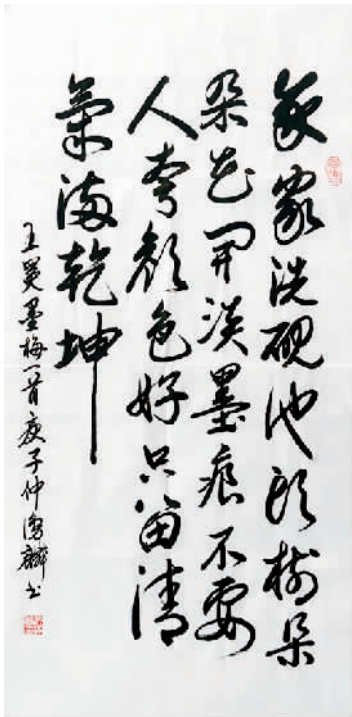 我家洗硯池頭樹朵
朵花開淡墨痕不要
人夸顏色好只留清
氣滿乾坤
王冕墨梅一首庚子仲麟书